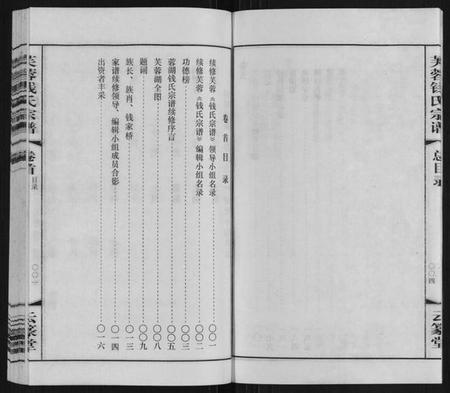 芙蓉钱氏宗谱
总目录
〇〇四
云篆堂
卷首目录
续修芙蓉《钱氏宗谱》领导小组名录 〇〇一
续修芙蓉《钱氏宗谱》编辑小组名录 〇〇二
功德榜 〇〇三
蓉湖钱氏宗谱续修序言 〇〇五
芙蓉湖全图 〇〇八
题词 〇〇九
族长、族肖、钱家桥 〇一三
家谱续修领导、编辑小组成员合影 〇一四
出资者丰采 〇一六
芙蓉钱氏宗谱
卷首
目录
〇〇一
云篆堂